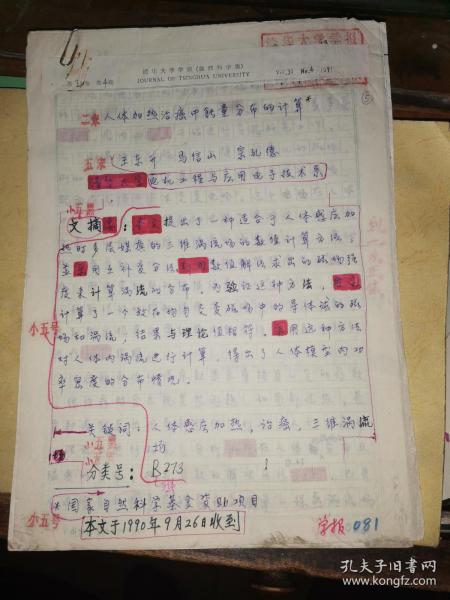 清华大学学报(自然科学版)
第31卷 第4期 JOURNAL OF TSINGHUA UNIVERSITY Vol.31 No.4 1991
⑤
二宋 人体加热治癌中能量分布的计算*
五宋 王东升 马信山 宗孔德
电机工程与应用电子技术系
小五号
文摘: 提出了一种适合于人体感应加
热时多层媒质的三维涡流场的数值计算方法,
并用数值解法求出的
度来计算涡流的分布。为验证这种方法,
计算了一个放在均匀交变磁场中的导体球的磁
场和涡流,结果与理论值相符。用这种方法
对人体内涡流进行计算,得出了人体模型内功
率密度的分布情况。
小五号
关键词:人体感应加热,治癌,三维涡流
场
分类号: R273
*国家自然科学基金资助项目
小五号 本文于1990年9月26日收到
学报 081
孔夫子旧书网
book.kongfz.com